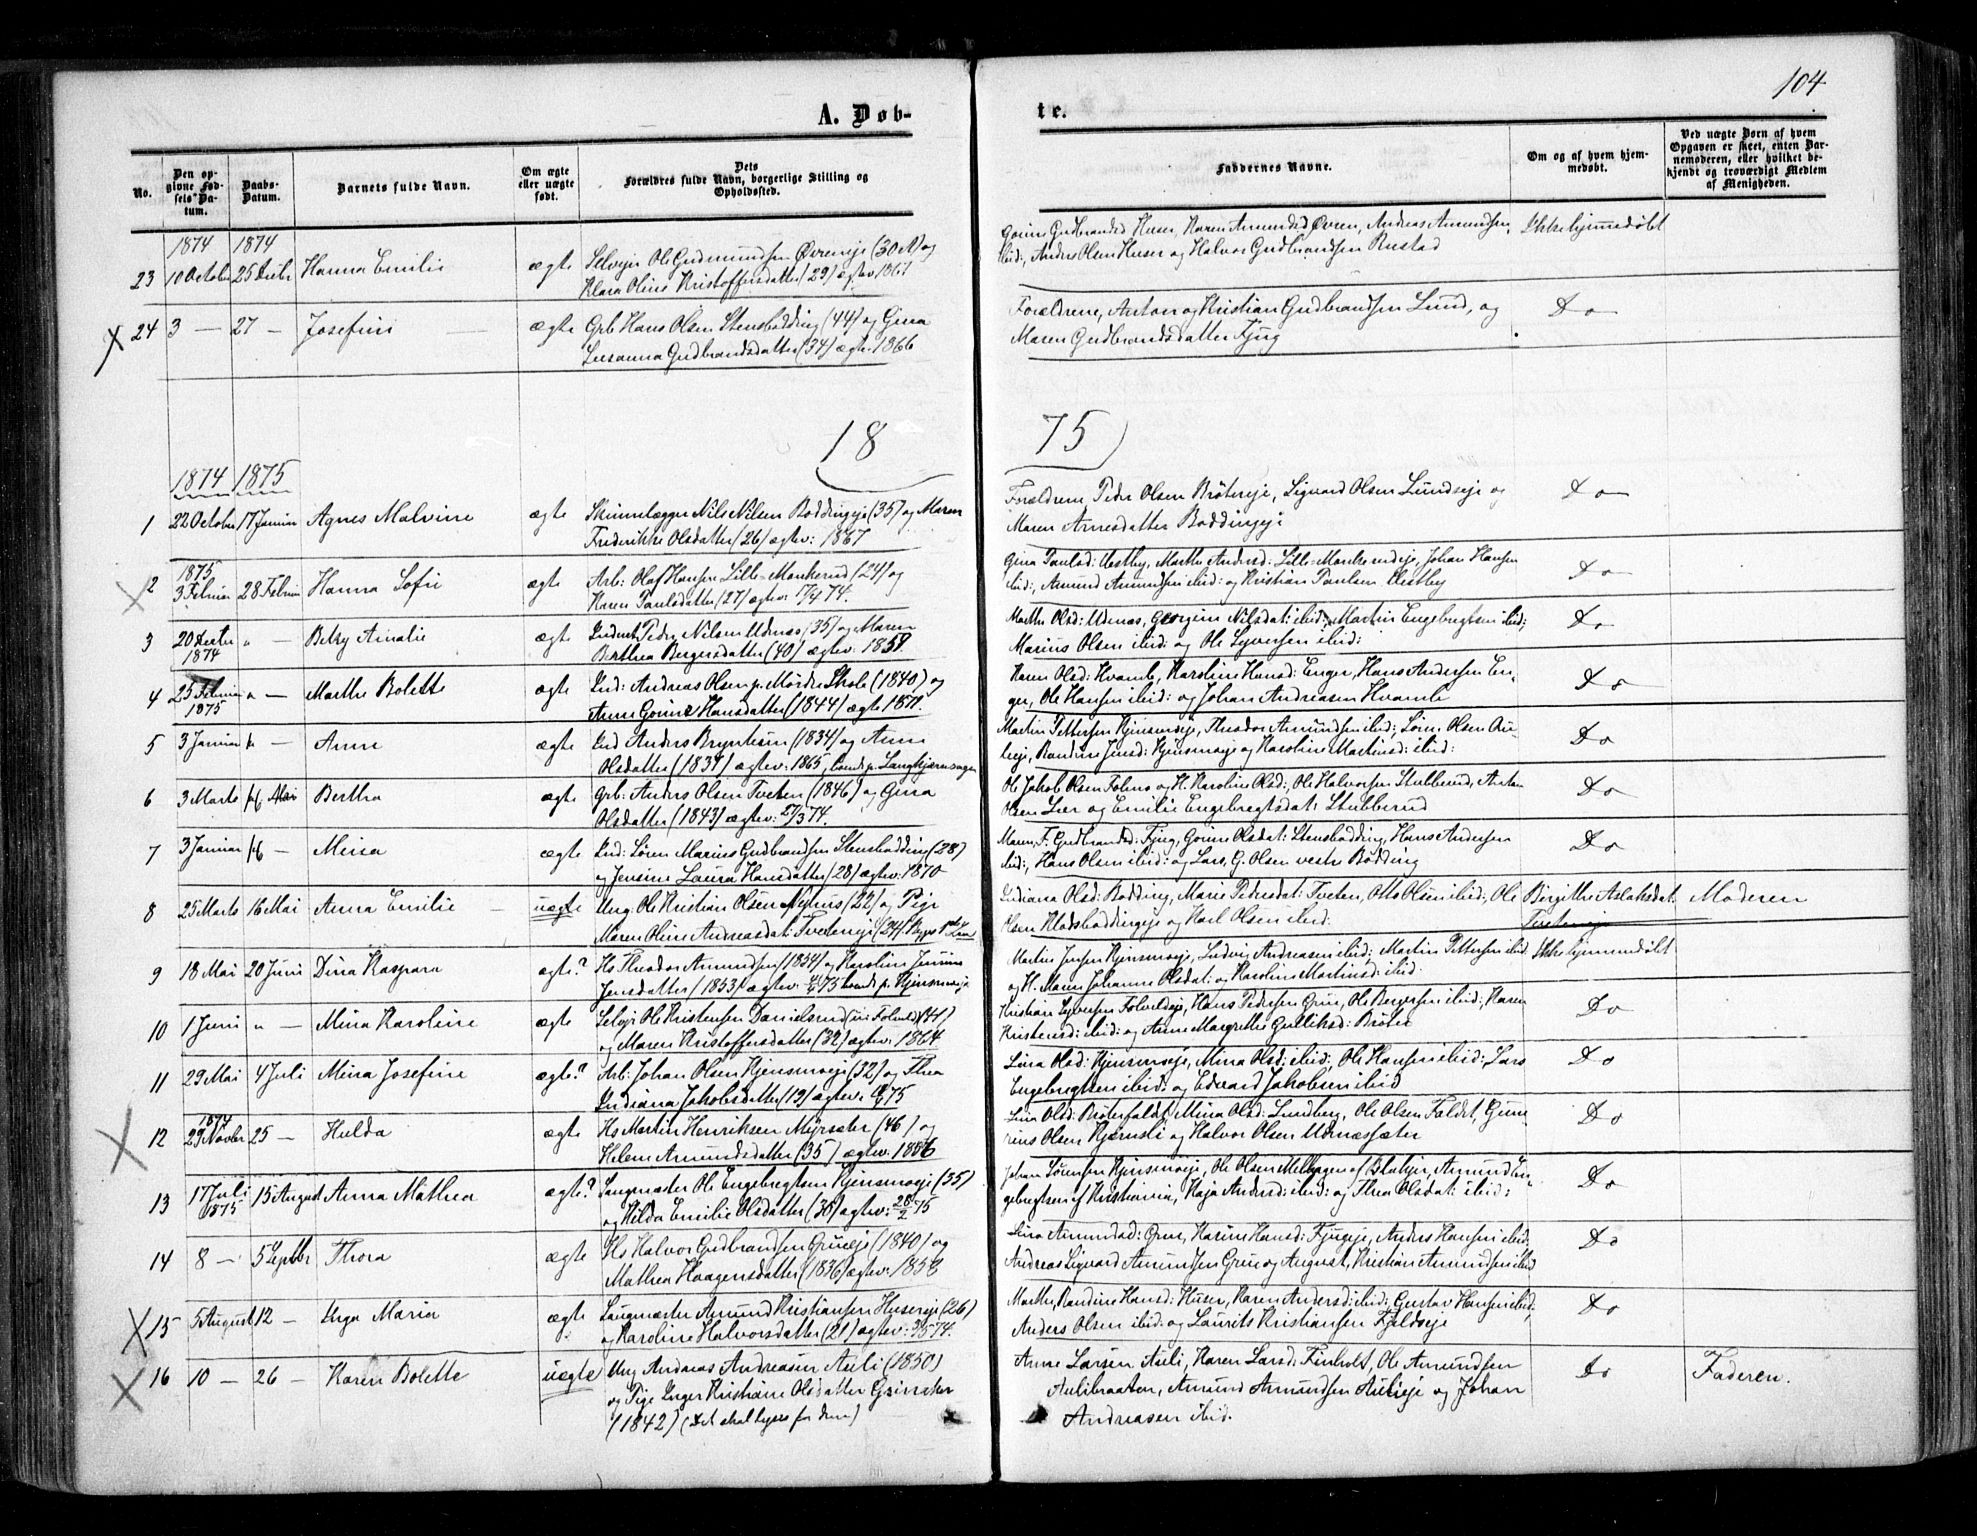 104
A. Døb-
te.
No.
Den op-
givne Fød-
sels-Da-
tum.
Daabs-
Datum.
Barnets fulde Navn.
Om ægte
eller uægte
født.
Dets
Forældres fulde Navn, borgerlige Stilling og
Opholdssted.
Faddernes Navne.
Om og af hvem hjem-
medøbt.
Ved uægte Børn af hvem
Opgaven er skeet, enten Bar-
nemoderen, eller hvilket be-
kjendt og troværdigt Medlem
af Menigheden.
1874 1874
23 10 October 25 Hanna Emilie ægte Selvejer Ole Gudmundsen Øvreneje (30 A) og
Klara Oline Kristoffersdatter (29) ægtev. 1867
Gorine Gudbrandsd Huser, Karen Amundsd Øvren, Andreas Amundsen
ibid:, Anders Olsen Huser og Halvor Gudbrandsen Rustad
Ikke hjemmedøbt
24 3 — 27 — Josefine ægte Grb. Hans Olsen Stensbødding (44) og Gina
Susanna Gudbrandsdatter (34) ægte 1866
Forældrene, Anton og Kristian Gudbrandsen Lund, og
Maren Gudbrandsdatter Fjug
Do
18 75
1874 1875
1 22 October 17 Januar Agnes Malvine ægte Skinnlægger Nils Nilsen Boddingeje (35) og Maren
Frederikke Olsdatter (26) ægtev: 1867
Forældrene Peder Olsen Bröterejé, Sigvard Olsen Lundseje og
Maren Arnesdatter Boddingeje
Do
1875
2 3 Februar 28 Februar Hanna Sofie ægte Arb: Olaf Hansen Lille-Mankerud (24) og
Karen Paulsdatter (27) ægtev. 17/4 74.
Gina Paulsd: Vestby, Marthe Andersd: Lille-Mankerudeje, Johan Hansen
ibid:, Amund Amundsen ibid: og Kristian Paulsen Vestby
Do
3 20 1874 " — Betzy Amalie ægte Inderst Peder Nilsen Udnæs (35) og Maren
Berthea Bergersdatter (40) ægtev: 1859.
Marthe Olsd: Udnæs, Georgine Nilsdat: ibid:, Martin Engebregtsen ibid;
Marius Olsen ibid: og Ole Syversen ibid:
Do
4 25 Februar 1875 " — Marthe Bolette ægte Ind: Andreas Olsen p. Mördre Skole (1840) og
Anne Gorine Hansdatter (1844) ægte 1871.
Karen Olsd: Hvamb, Karoline Hansd: Enger, Hans Andersen En-
ger, Ole Hansen ibid: og Johan Andreasen Hvamb
Do
5 3 Januar — Anne ægte Ind Anders Bryntesen (1834) og Anne
Olsdatter (1837) ægtev: 1865,
Martin Pettersen Kjensmoeje, Theodor Amundsen ibid;, Sören Olsen Au-
lieje, Randine Jensd: Kjensmoeje og Karoline Martinsd: ibid:
Do
6 3 Marts Mai Bertha ægte Grb: Anders Olsen Tveten (1846) og Gina
Olsdatter (1843) ægtev: 27/3 74.
Ole Jakob Olsen Folnes og H. Karoline Olsd:, Ole Halvorsen Stubberud, Anton
Olsen Lier og Emilie Engebregtsdat: Stubberud
Do
7 3 Januar — Mina ægte Ind: Sören Marius Gudbrandsen Stensbødding (28)
og Jensine Laura Hansdatter (28) ægtev: 1870
Maren F. Gudbrandsd: Fjug, Gorine Olsdat: Stensbødding, Hans Andersen
ibid;, Hans Olsen ibid: og Lars G. Olsen vestre Bødding
Do
8 25 Marts 16 Mai Anna Emilie uægte Ung. Ole Kristian Olsen (22) og Pige
Maren Oline Andreasdat: Tveteneje (24)
Indiana Olsd: Bodding, Marie Pedersdat: Tveten, Otto Olsen ibid:, Ole
Olsen Klodsboddingeje og Karl Olsen ibid:
Birgithe Aslaksdat. Tveteneje
Moderen
9 18 Mai 20 Juni Dina Kaspara ægte? Hs Theodor Amundsen (1854) og Karoline Jensine
Jensdatter (1853) ægtev: 75 Kjensmoeje
Martin Jensen Kjensmoeje, Ludvig Andreasen ibid:, Martin Pettersen ibid:
og H. Maren Johanne Olsdat: og Karoline Martinsd: ibid:
Ikke hjemmedøbt
10 1 Juni " — Mina Karoline ægte Selvej: Ole Kristensen Danielsrud (41)
og Maren Kristoffersdatter (32) ægtev: 1864
Kristian Syversen, Hans Pedersen Grue, Ole Bergersen ibid:, Karen
Kristensd: ibid: og Anne Margrethe Gulliksd: Bröter
Do
11 29 Mai 4 Juli Mina Josefine ægte? Arb. Johan Olsen Kjensmoeje (32) og Thea
Indiana Jakobsdatter (19) ægtev. 75
Lina Olsd: Kjensmoeje, Mina Olsd: ibid:, Ole Hansen ibid:, Lars
Engebregtsen ibid: og Edvard Jakobsen ibid
Do
1874
12 29 Novbr 25 — Hulda ægte Hs Martin Henriksen Myrsæter (46) og
Helene Amundsdatter (35) ægtev. 1856
Lina Olsd: Bröterfaldet, Mina Olsd: Lundberg, Ole Olsen Faldet, Gune-
rius Olsen Kjærnsli og Halvor Olsen Udnæssæter
Do
13 17 Juli 1875 15 August Anna Mathea ægte? Laugmæster Ole Engebregtsen Kjensmoeje (35)
og Hilda Emilie Olsdatter (30) ægtev: 28/2 75
Johan Sörensen Kjensmoeje, Ole Olsen, Amund En-
gebregtsen af Kristiania, Kaja Andersd: ibid: og Thea Olsdat: ibid:
Do
14 8 — 5 Septbr Thora ægte Hs Halvor Gudbrandsen Grueeje (1840) og
Mathea Haagensdatter (1836) ægtev. 1858
Lina Amundsd: Grue, Karine Hansd: Fjugeje, Anders Hansen ibid:
Andreas Sigvard Amundsen Grue og August Kristian Amundsen ibid
Do
15 5 August 12 — Inga Maria ægte Laugmæster Amund Kristiansen Husereje (26)
og Karoline Halvorsdatter (21) ægtev: 74.
Marthe Randine Hansd: Huser, Karen Andersd: ibid: Gustav Hansen ibid;
Anders Olsen ibid: og Laurits Kristiansen Fjeldseje
Do
16 10 — 26 — Karen Bolette uægte Ung Andreas Andreasen Auli (1850)
og Pige Inger Kristiane Olsdatter
(1842) (Det skal lyses for dem)
Anne Larsen Auli, Karen Larsd: Finholt, Ole Amundsen
Aulibraaten, Amund Amundsen Aulieje og Johan
Andreasen ibid.
Do
Faderen.